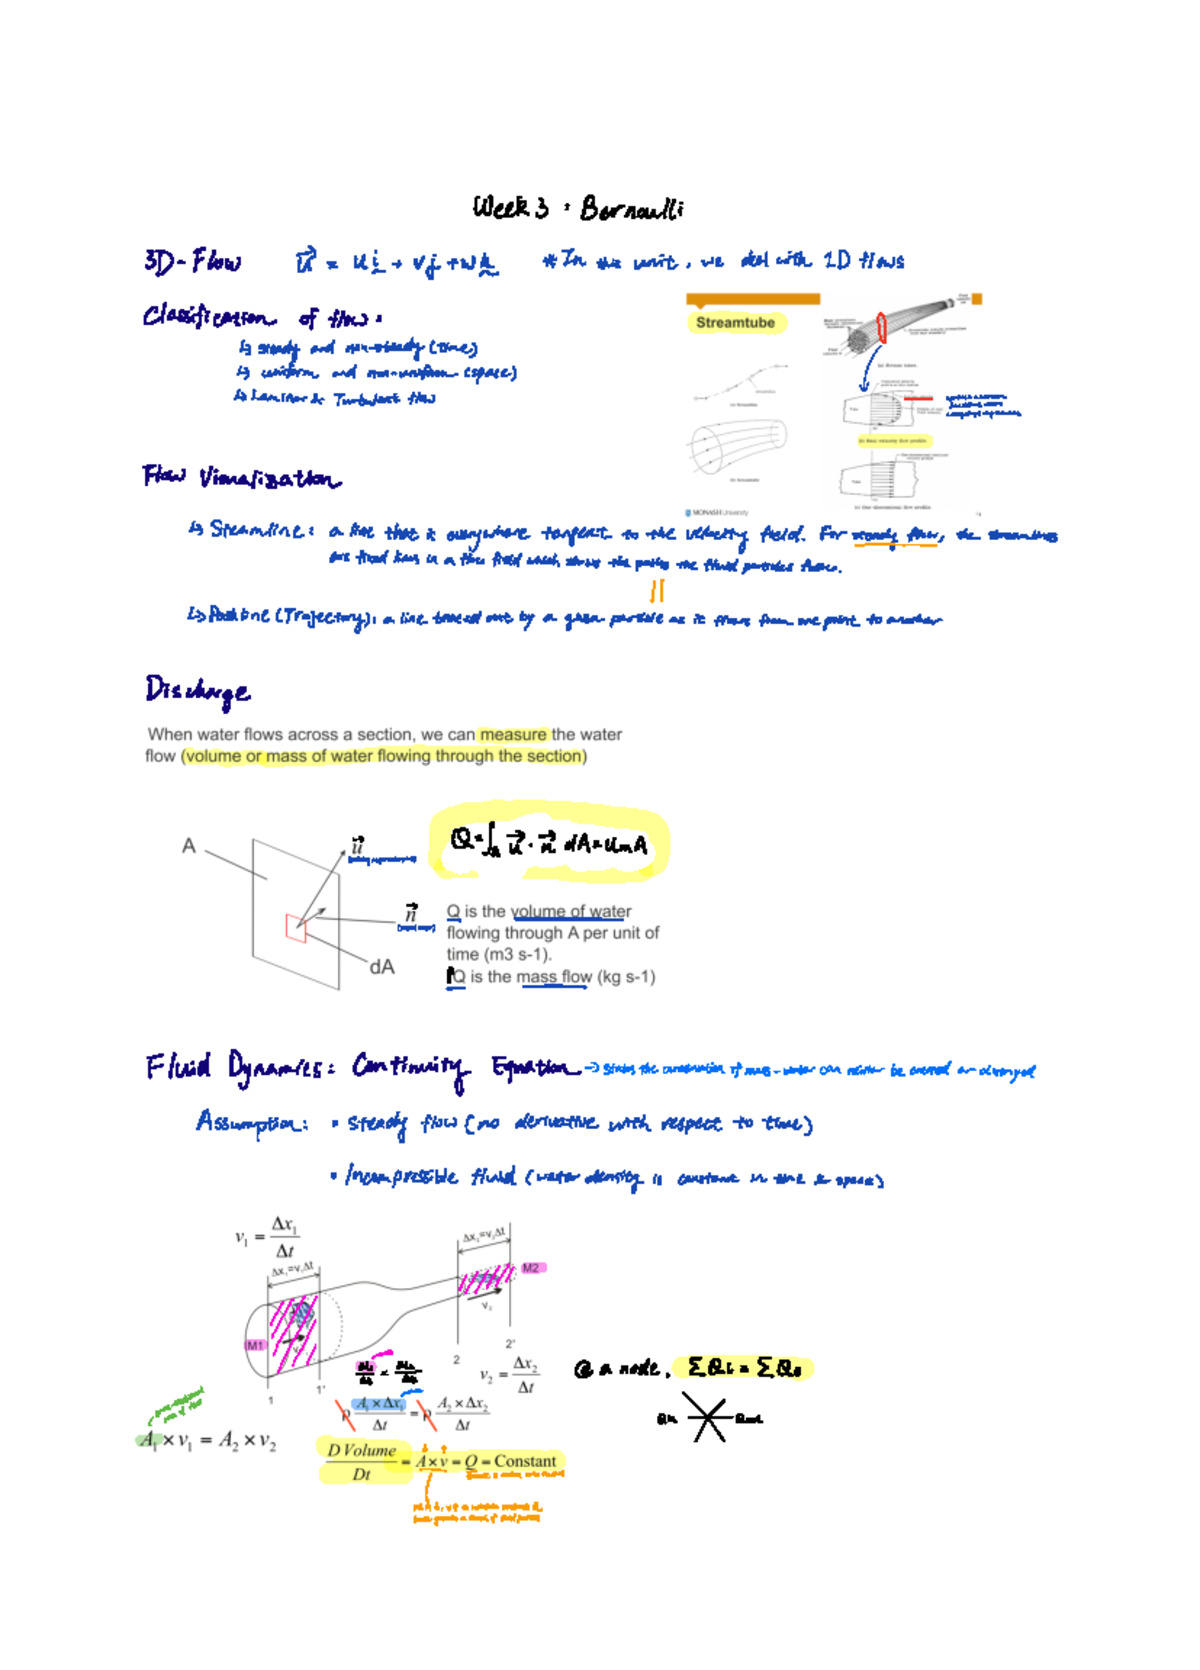 Week 3 : Bernoulli
3D-Flow u⃗ = u i + v j + w k * In this unit, we deal with 1D flows
Classification of flow:
↳ steady and non-steady (time)
↳ uniform and non-uniform (space)
↳ Laminar & Turbulent flow
Streamtube
(a) Streamline
(b) Streamtube
(a) Stream tube.
(b) Real velocity flow profile.
(c) One-dimensional flow profile.
MONASH University
Flow Visualization
↳ Streamline: a line that is everywhere tangent to the velocity field. For steady flow, the streamlines
are fixed lines in a flow field which shows the paths the fluid particles follow.
||
↳ Pathline (Trajectory): a line traced out by a given particle as it flows from one point to another
Discharge
When water flows across a section, we can measure the water
flow (volume or mass of water flowing through the section)
Q = ∫A u⃗ · n⃗ dA = um A
A
u⃗
n⃗
dA
Q is the volume of water
flowing through A per unit of
time (m3 s-1).
ρQ is the mass flow (kg s-1)
Fluid Dynamics: Continuity Equation → States the conservation of mass - water can neither be created or destroyed
Assumption: • Steady flow (no derivative with respect to time)
• Incompressible fluid (water density is constant in time & space)
v1 = Δx1/Δt
Δx1=v1Δt
M1
v1
1
1'
M2
v2
2
2'
v2 = Δx2/Δt
ρ A1 × Δx1/Δt = ρ A2 × Δx2/Δt
A1 × v1 = A2 × v2
D Volume/Dt = A × v = Q = Constant
@ a node, ΣQi = ΣQo
Qin Qout